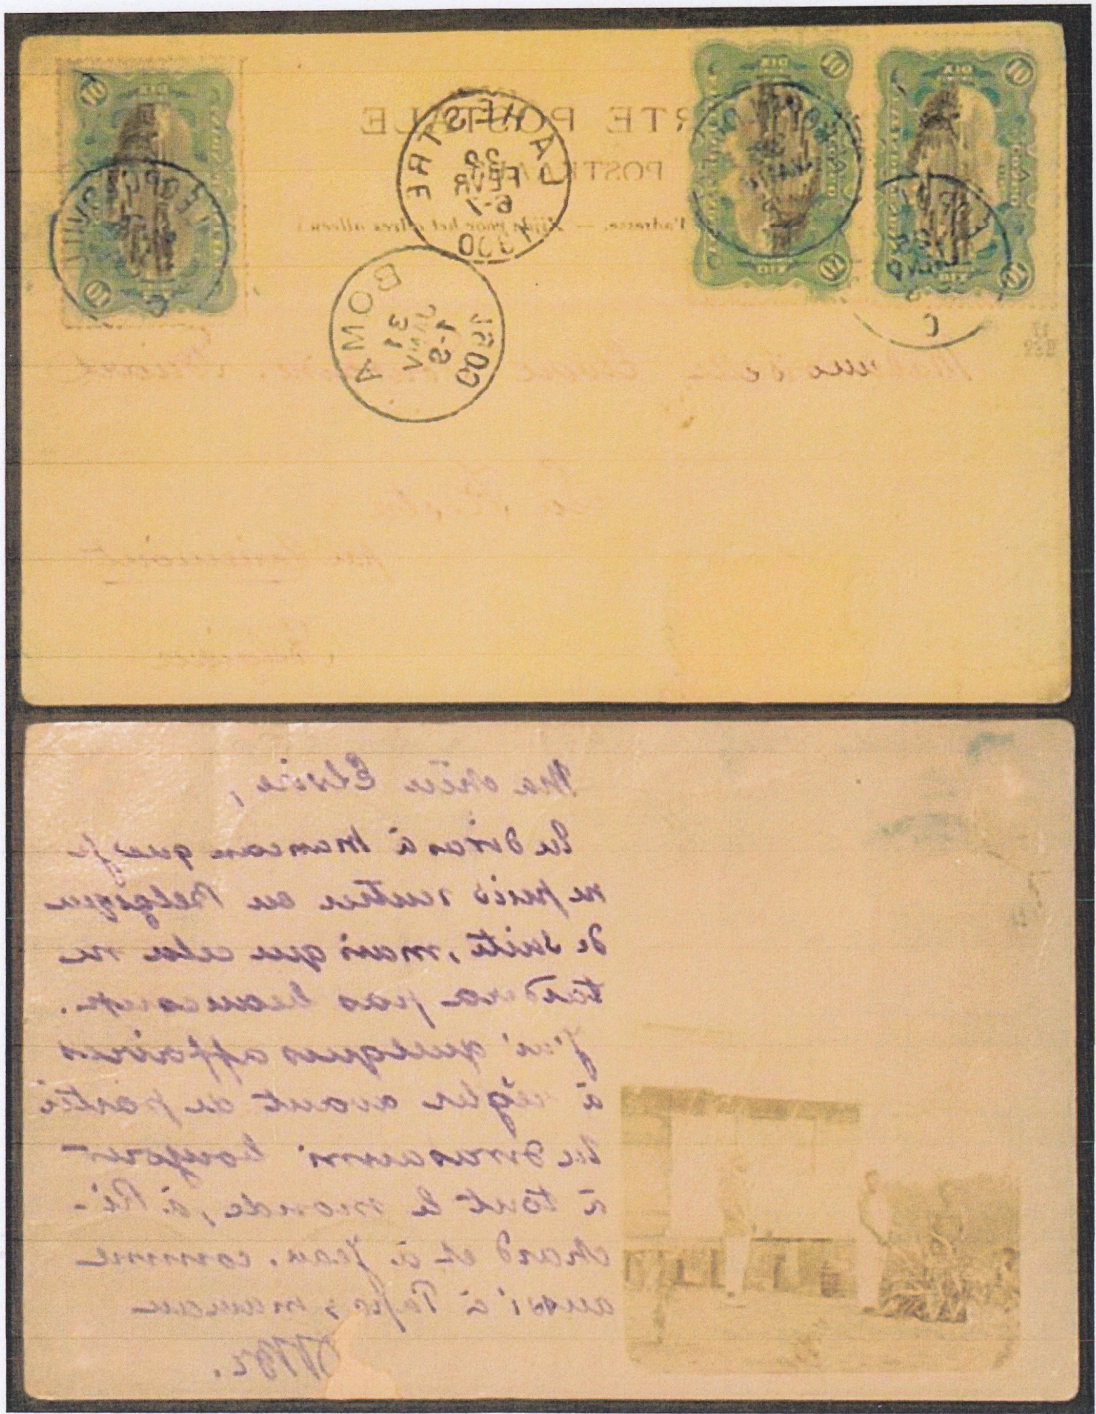 RTE POSTALE
POSTKAA
l'adresse. — Zijde voor het adres alleen.)
DIX
10
LA HESTRE
20
FEVR
6-7
1900
BOMA
31
JANV
1-S
1900
Mademoiselle Elvire
La Hestre
par Mariemont
Belgique
Ma chère Elvire,
Tu diras à maman que je
ne puis rentrer en Belgique
de suite, mais que cela ne
tardera pas beaucoup.
J'ai quelques affaires
à régler avant de partir
Tu diras aussi bonjour
à tout le monde, à Ri-
chard et à Jean. comme
aussi à Papa & maman